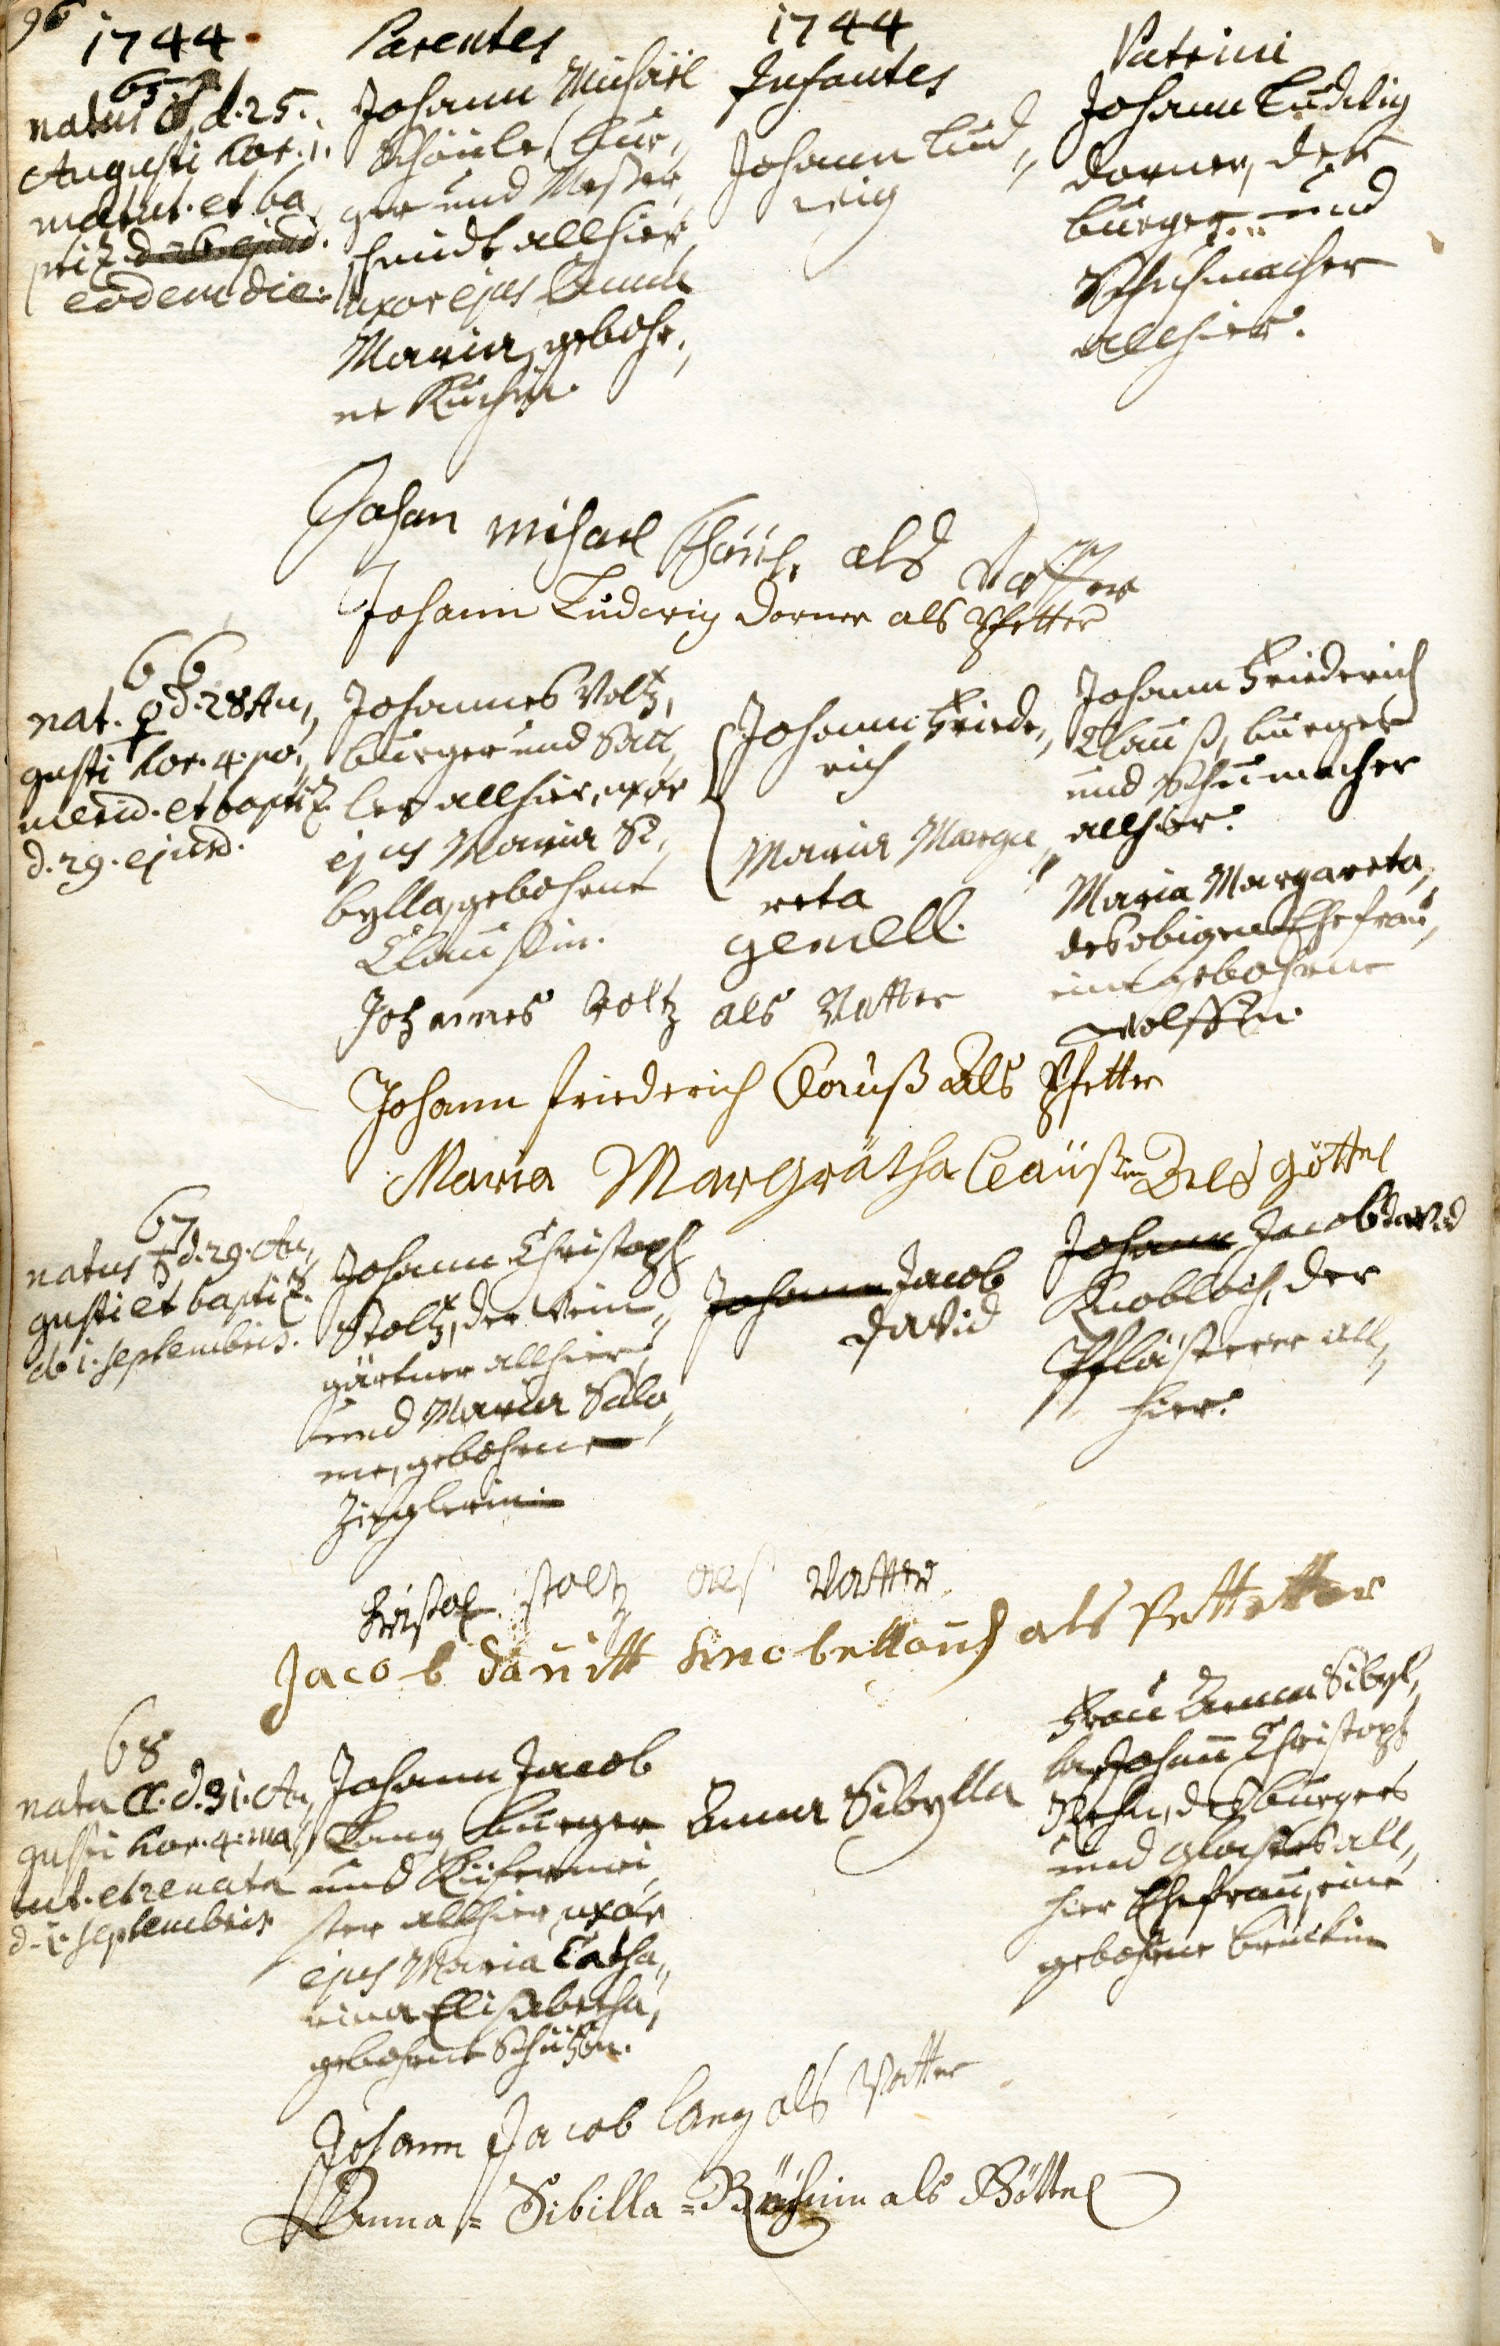 96
1744.
Parentes
1744
Infantes
Patrini
65
natus ♂ d. 25.
Augusti hor. 1.
matut. et ba
ptiz. d. 26 ejusd.
eodem die.
Johann Michael
Schäule, bur,,
ger und Messer,,
schmidt allhier
uxor ejus Anna
Maria, gebohr,,
ne Kuchin.
Johann Lud,,
wig
Johann Ludwig
Dorner, der
burger und
Schuhmacher
allhier.
Johan Michael als Vatter
Johann Ludwig Dorner als Pfetter
66
nat. ♀ d. 28 Au,,
gusti hor. 4. po,,
merid. et baptiz.
d. 29. ejusd.
Johannes Voltz,
burger und Satt,,
ler allhier, uxor
ejus Maria Si,,
bylla, gebohrne
Claussin.
Johann Friede,,
rich
Maria Marga,,
reta
gemell.
Johann Friederich
Clauß, burger
und Schumacher
allhier.
Maria Margareta,
des obigen Ehefrau,
eine gebohrne
Wolffin.
Johannes Voltz als Vatter
Johann Friederich Clauß Als Pfetter
Maria Margrätha Claüßin Als göttel
67
natus ♄ d. 29. Au,,
gusti et baptiz.
d. 1. Septembris.
Johann Christoph
Stoltz, der Wein,,
gärtner allhier,
und Maria Salo,,
me, gebohrne
Zieglerin.
Johann Jacob
David
Johann Jacob David
Knobloch, der
Pflästerer all,,
hier.
Christof Stoltz als Vatter
Jacob Davitt Knobellouch als Pettetter
68
nata ☾. d. 31. Au,,
gusti hor. 4. ma,,
tut. et renata
d. 1. Septembris
Johann Jacob
Lang burger
und Küfermei,,
ster allhier, uxor
ejus Maria Catha,,
rina Elisabetha,
gebohrne Schützin.
Anna Sibylla
Frau Anna Sibyl,,
la, Johann Christoph
des burgers
und Glasers all,,
hier Ehefrau, eine
gebohrne
Johann Jacob Lang als Vatter
Anna = Sibilla = als Göttel